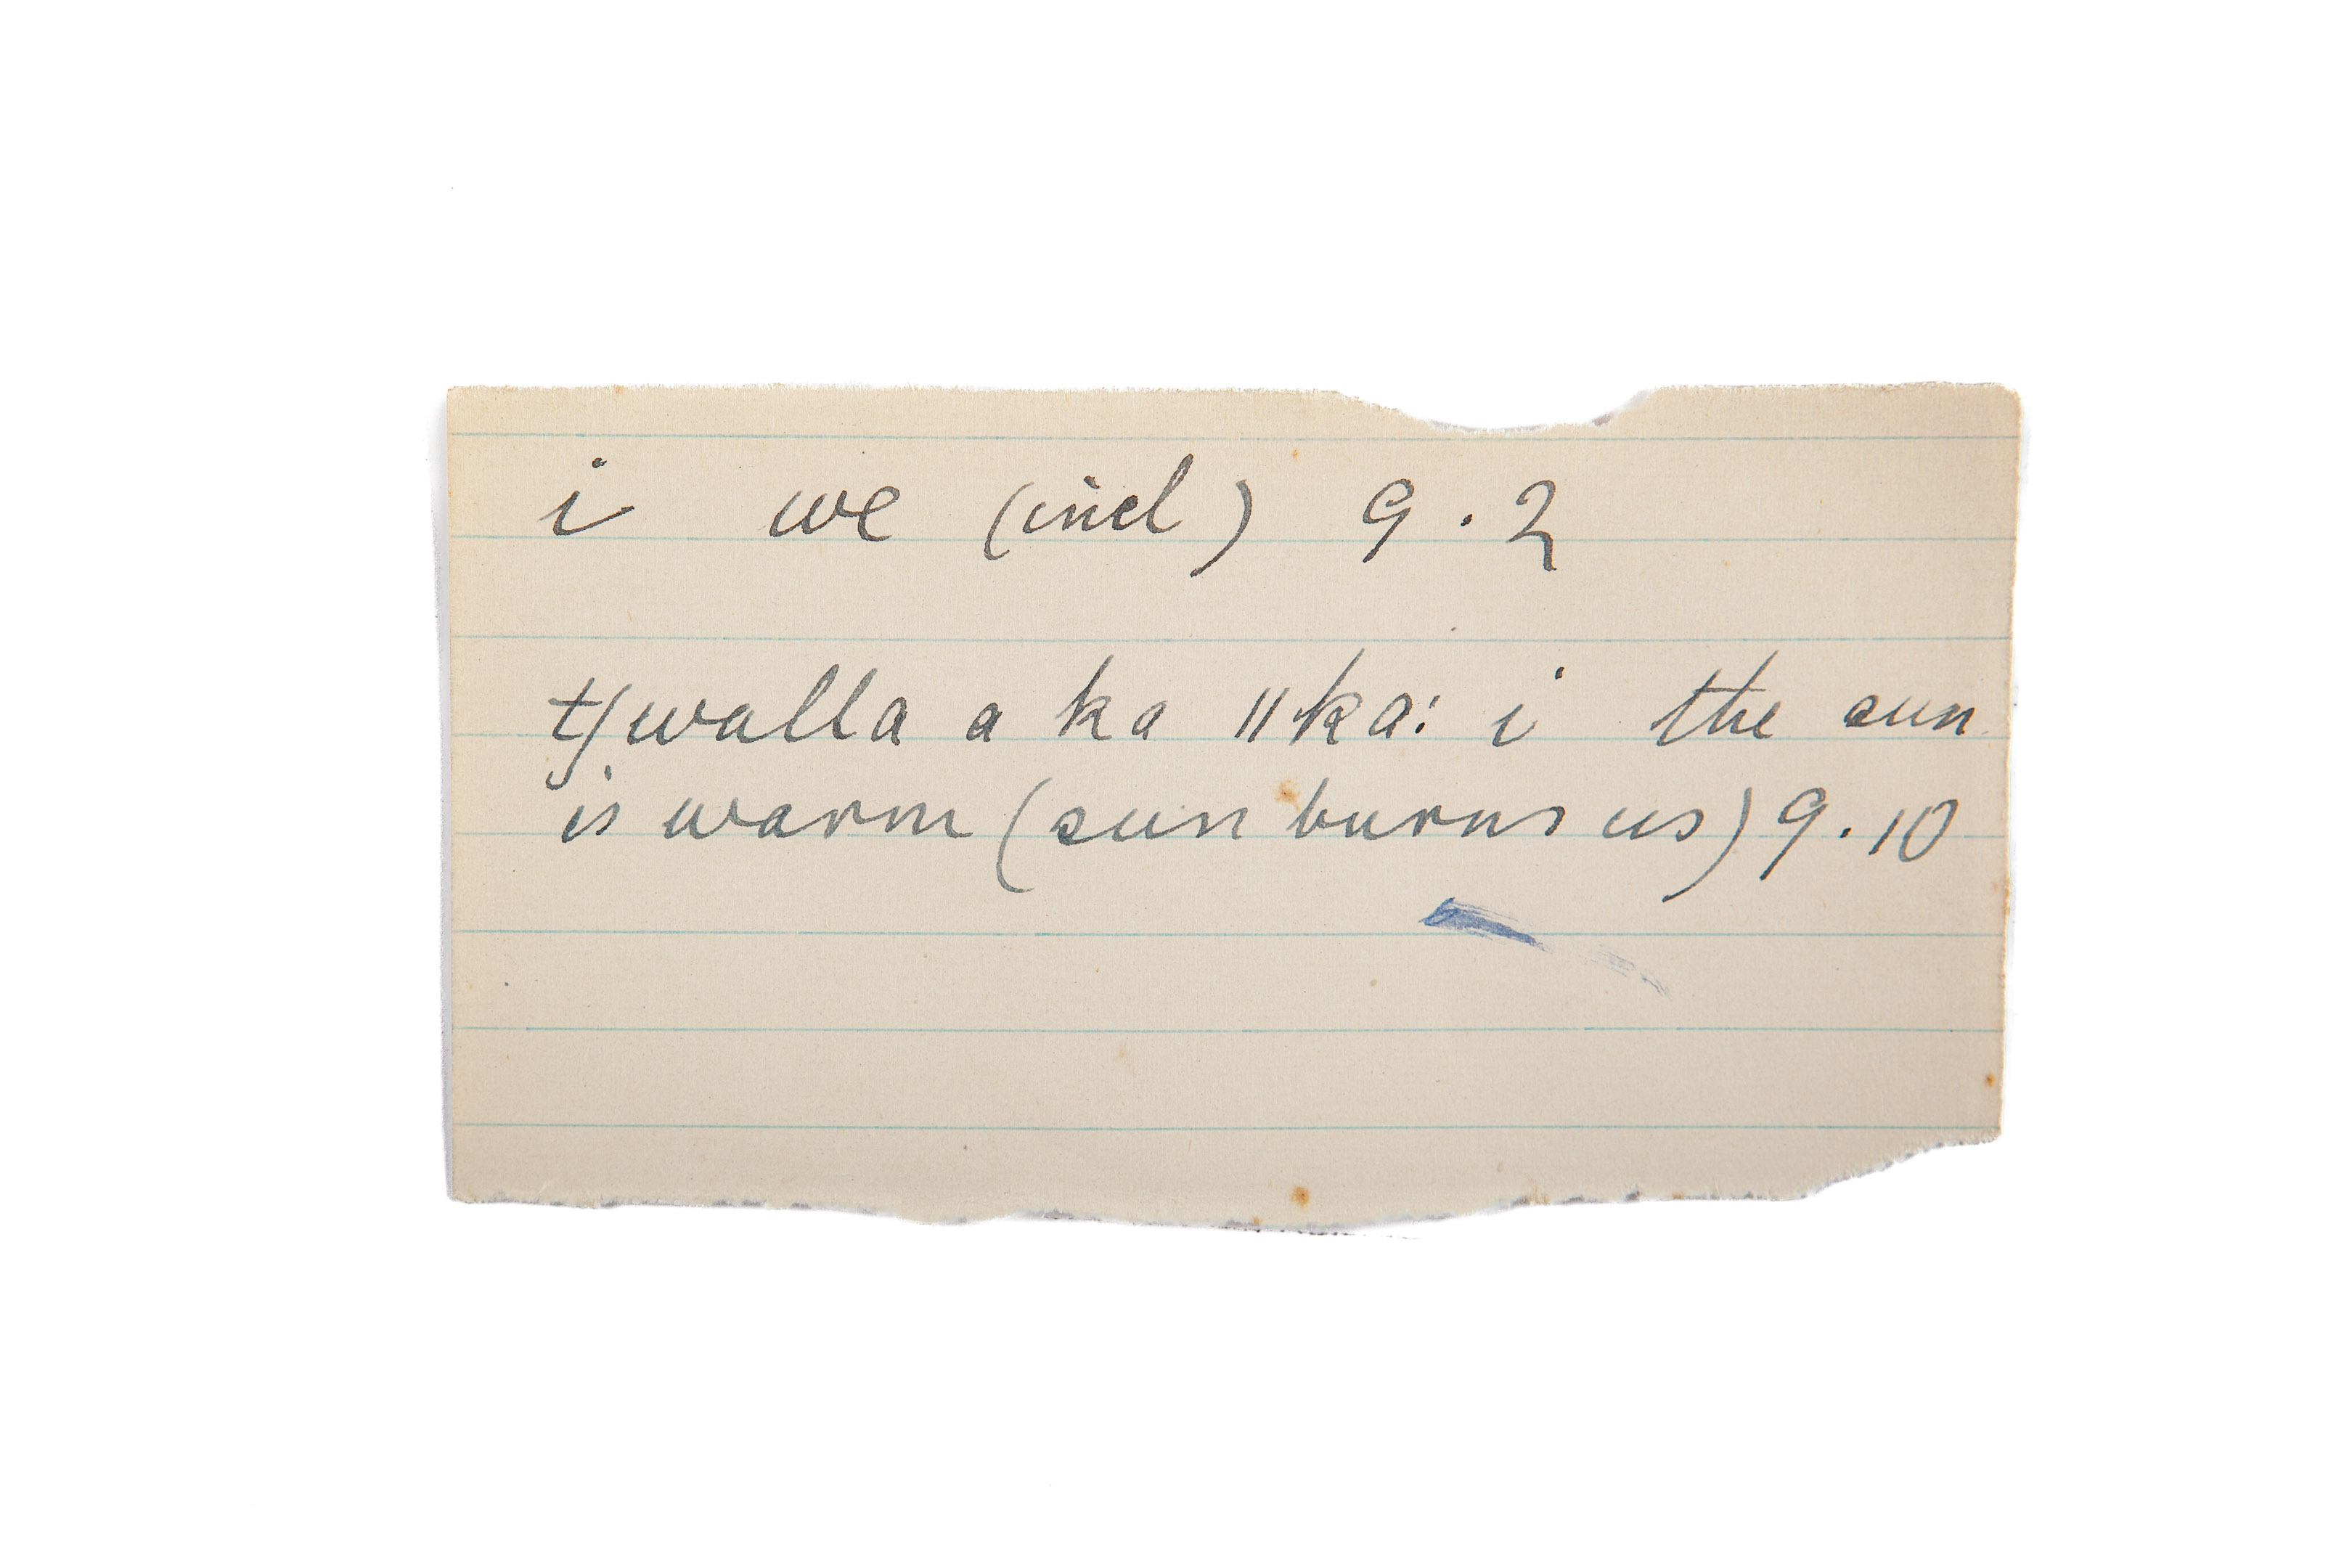 i we (incl) 9.2
tʃwalla a ka ǁka: i the sun
is warm (sun burns us) 9.10